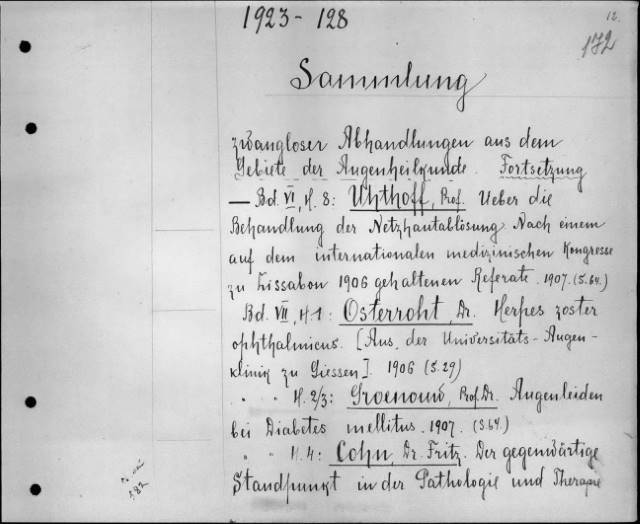 1923-128
12.
172
Sammlung
zwangloser Abhandlungen aus dem
Gebiete der Augenheilkunde. Fortsetzung
— Bd. VI, H. 8: Uhthoff, Prof. Ueber die
Behandlung der Netzhautablösung. Nach einem
auf dem internationalen medizinischen Kongresse
zu Lissabon 1906 gehaltenen Referate. 1907. (S.64.)
Bd. VII, H.1: Osterroht, Dr. Herpes zoster
ophthalmicus. [Aus der Universitäts-Augen-
klinik zu Giessen]. 1906 (S.29)
" " H. 2/3: Groenouw, Prof. Dr. Augenleiden
bei Diabetes mellitus. 1907. (S.64.)
" " H.4: Cohn, Dr. Fritz. Der gegenwärtige
Standpunkt in der Pathologie und Therapie
182